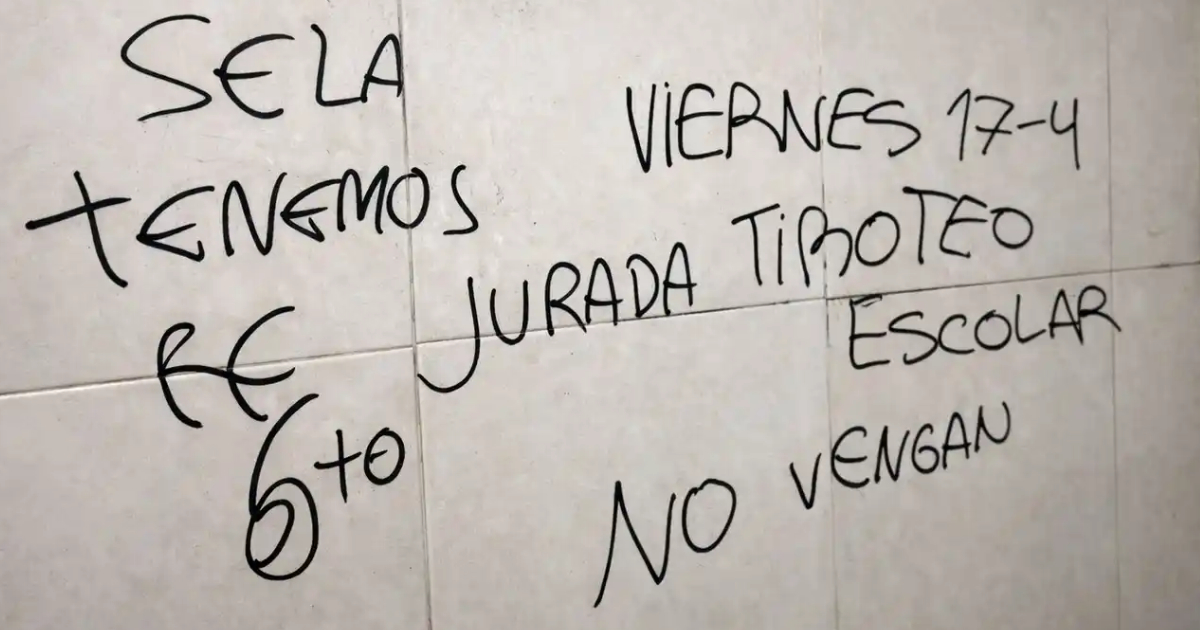 SE LA
TENEMOS
RE JURADA
6to
VIERNES 17-4
TIROTEO
ESCOLAR
NO VENGAN